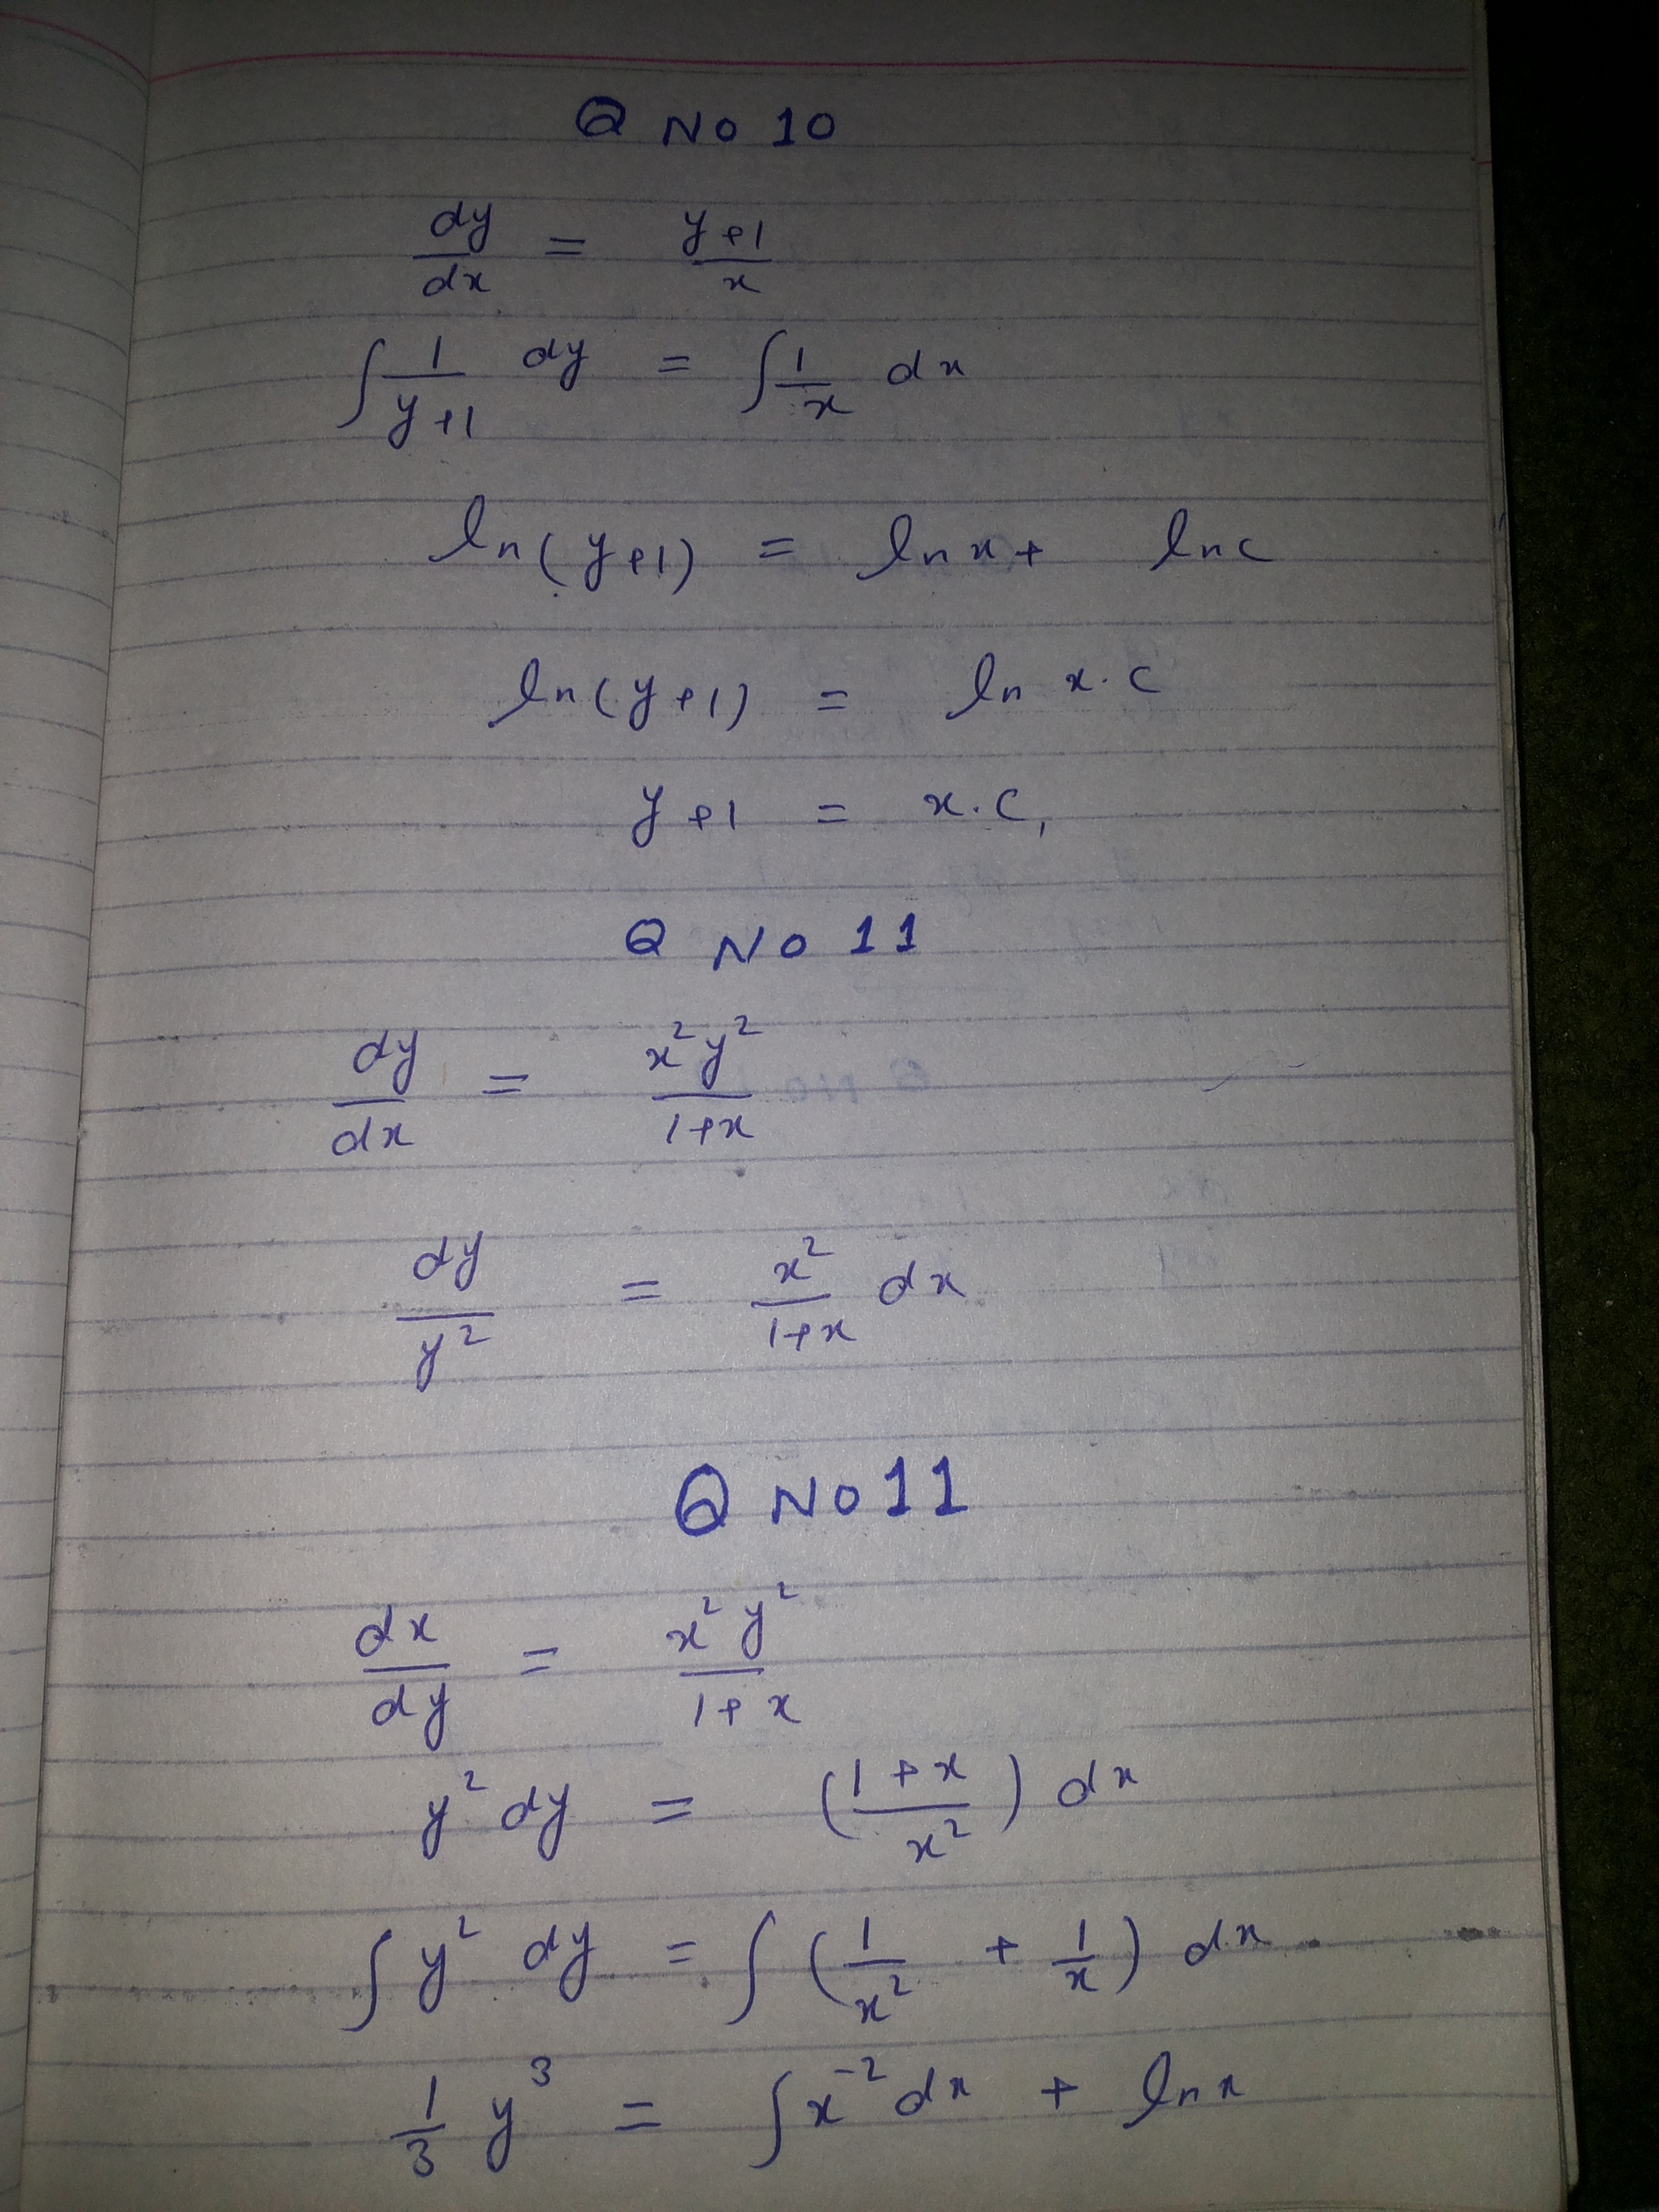 Q No 10
dy/dx = y+1/x
∫ 1/y+1 dy = ∫ 1/x dx
ln(y+1) = ln x + ln c
ln(y+1) = ln x.c
y+1 = x.c,
Q No 11
dy/dx = x²y²/1+x
dy/y² = x²/1+x dx
Q No 11
dx/dy = x²y²/1+x
y² dy = (1+x/x²) dx
∫ y² dy = ∫ (1/x² + 1/x) dx
1/3 y³ = ∫ x⁻² dx + ln x